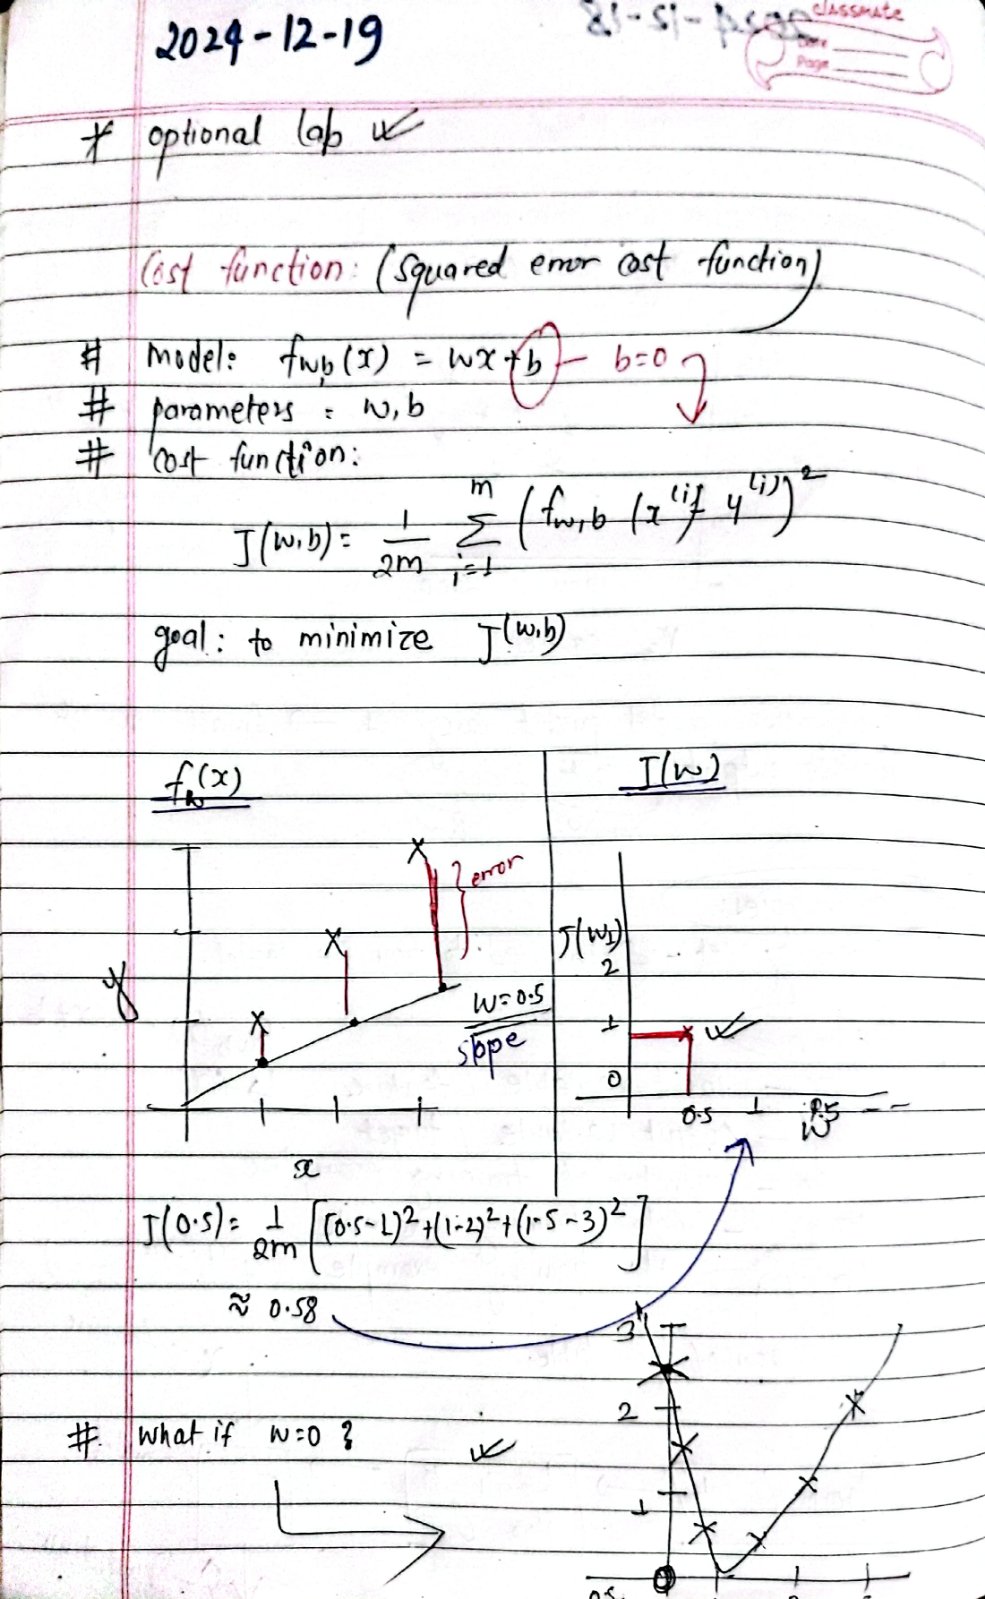 classmate
Date
Page
2024-12-19
* optional lab
Cost function: (squared error cost function)
# model: fw,b (x) = wx+b — b=0
# parameters : w, b
# cost function:
J(w,b) = 1/2m m Σ i=1 (fw,b (x(i)) - y(i))2
goal: to minimize J(w,b)
fw(x)
J(w)
error
y
w=0.5
slope
x
J(w1)
2
1
0
0.5 1
w
J(0.5) = 1/2m [(0.5-1)2+(1-2)2+(1.5-3)2]
≈ 0.58
3
2
1
0
# what if w=0 ?